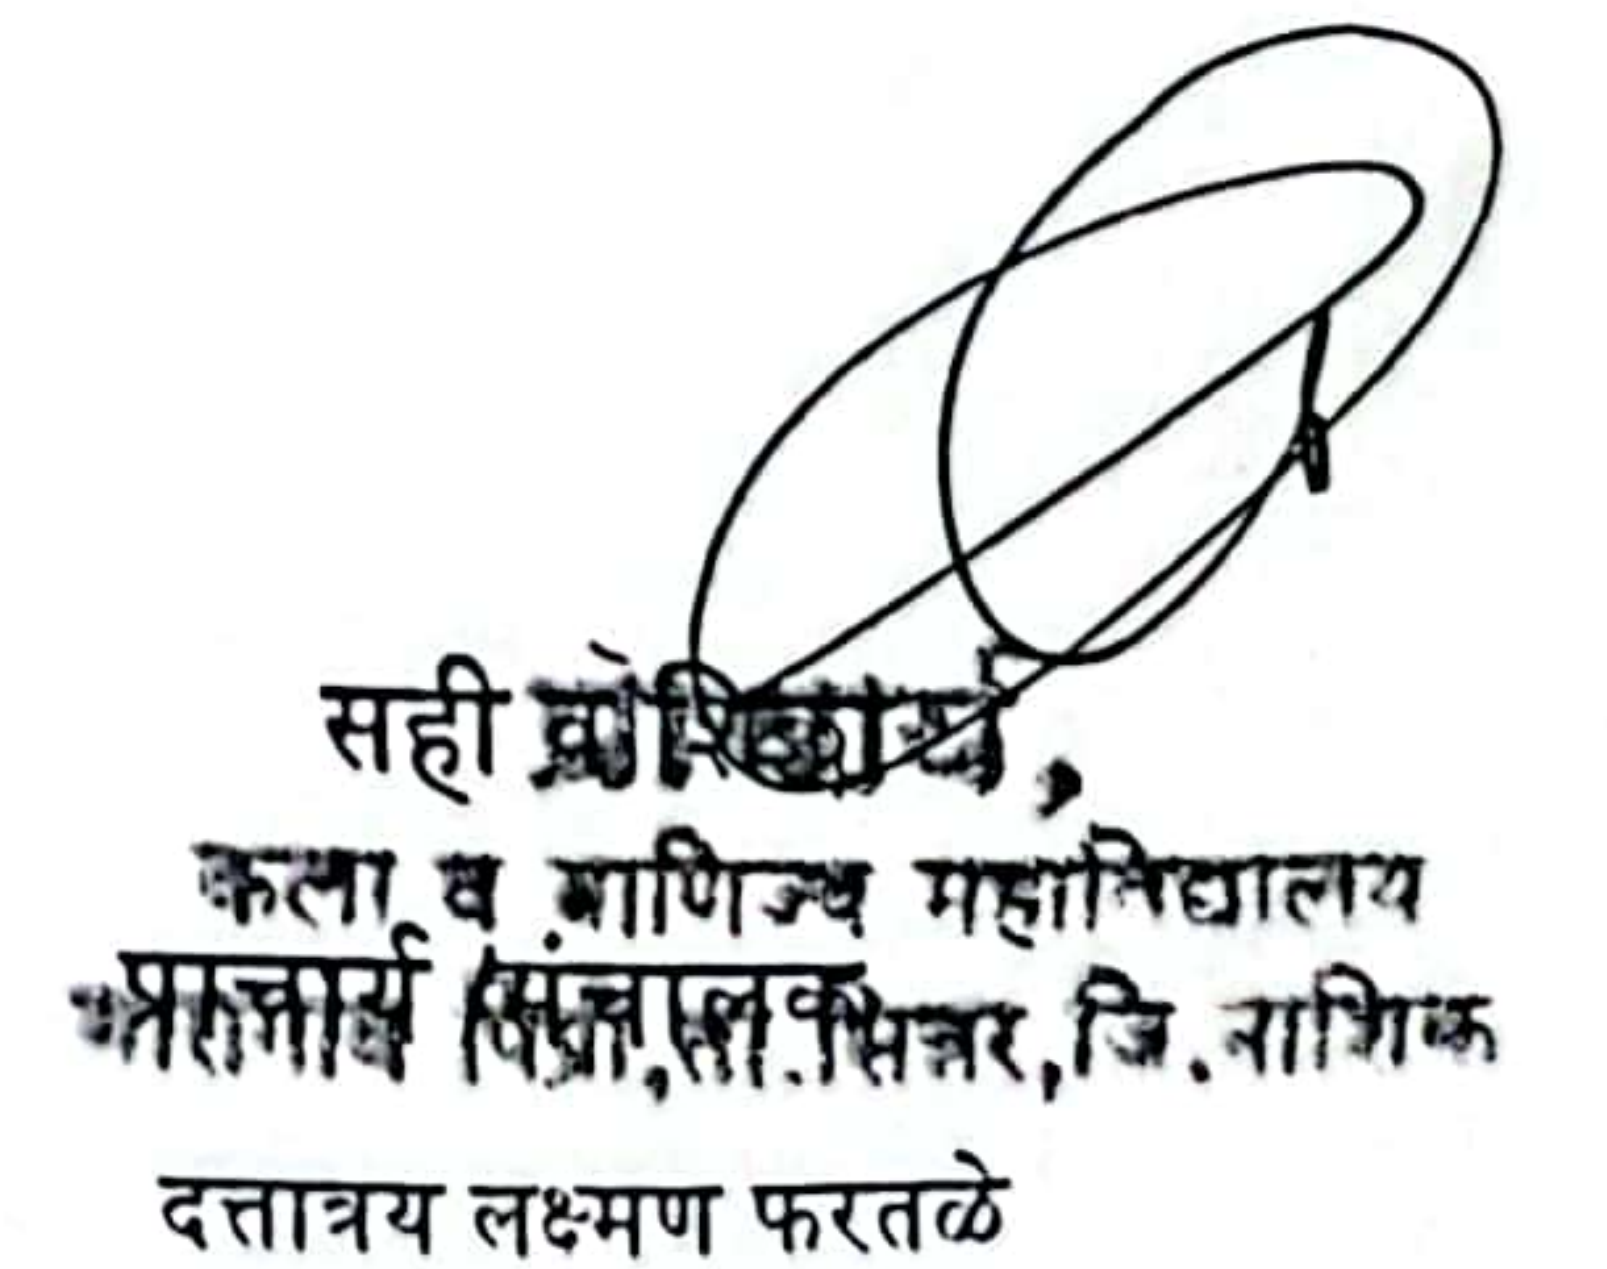 सही
कला व वाणिज्य महाविद्यालय
प्राचार्य संचालक
ता. सिन्नर, जि. नाशिक
दत्तात्रय लक्ष्मण फरतळे